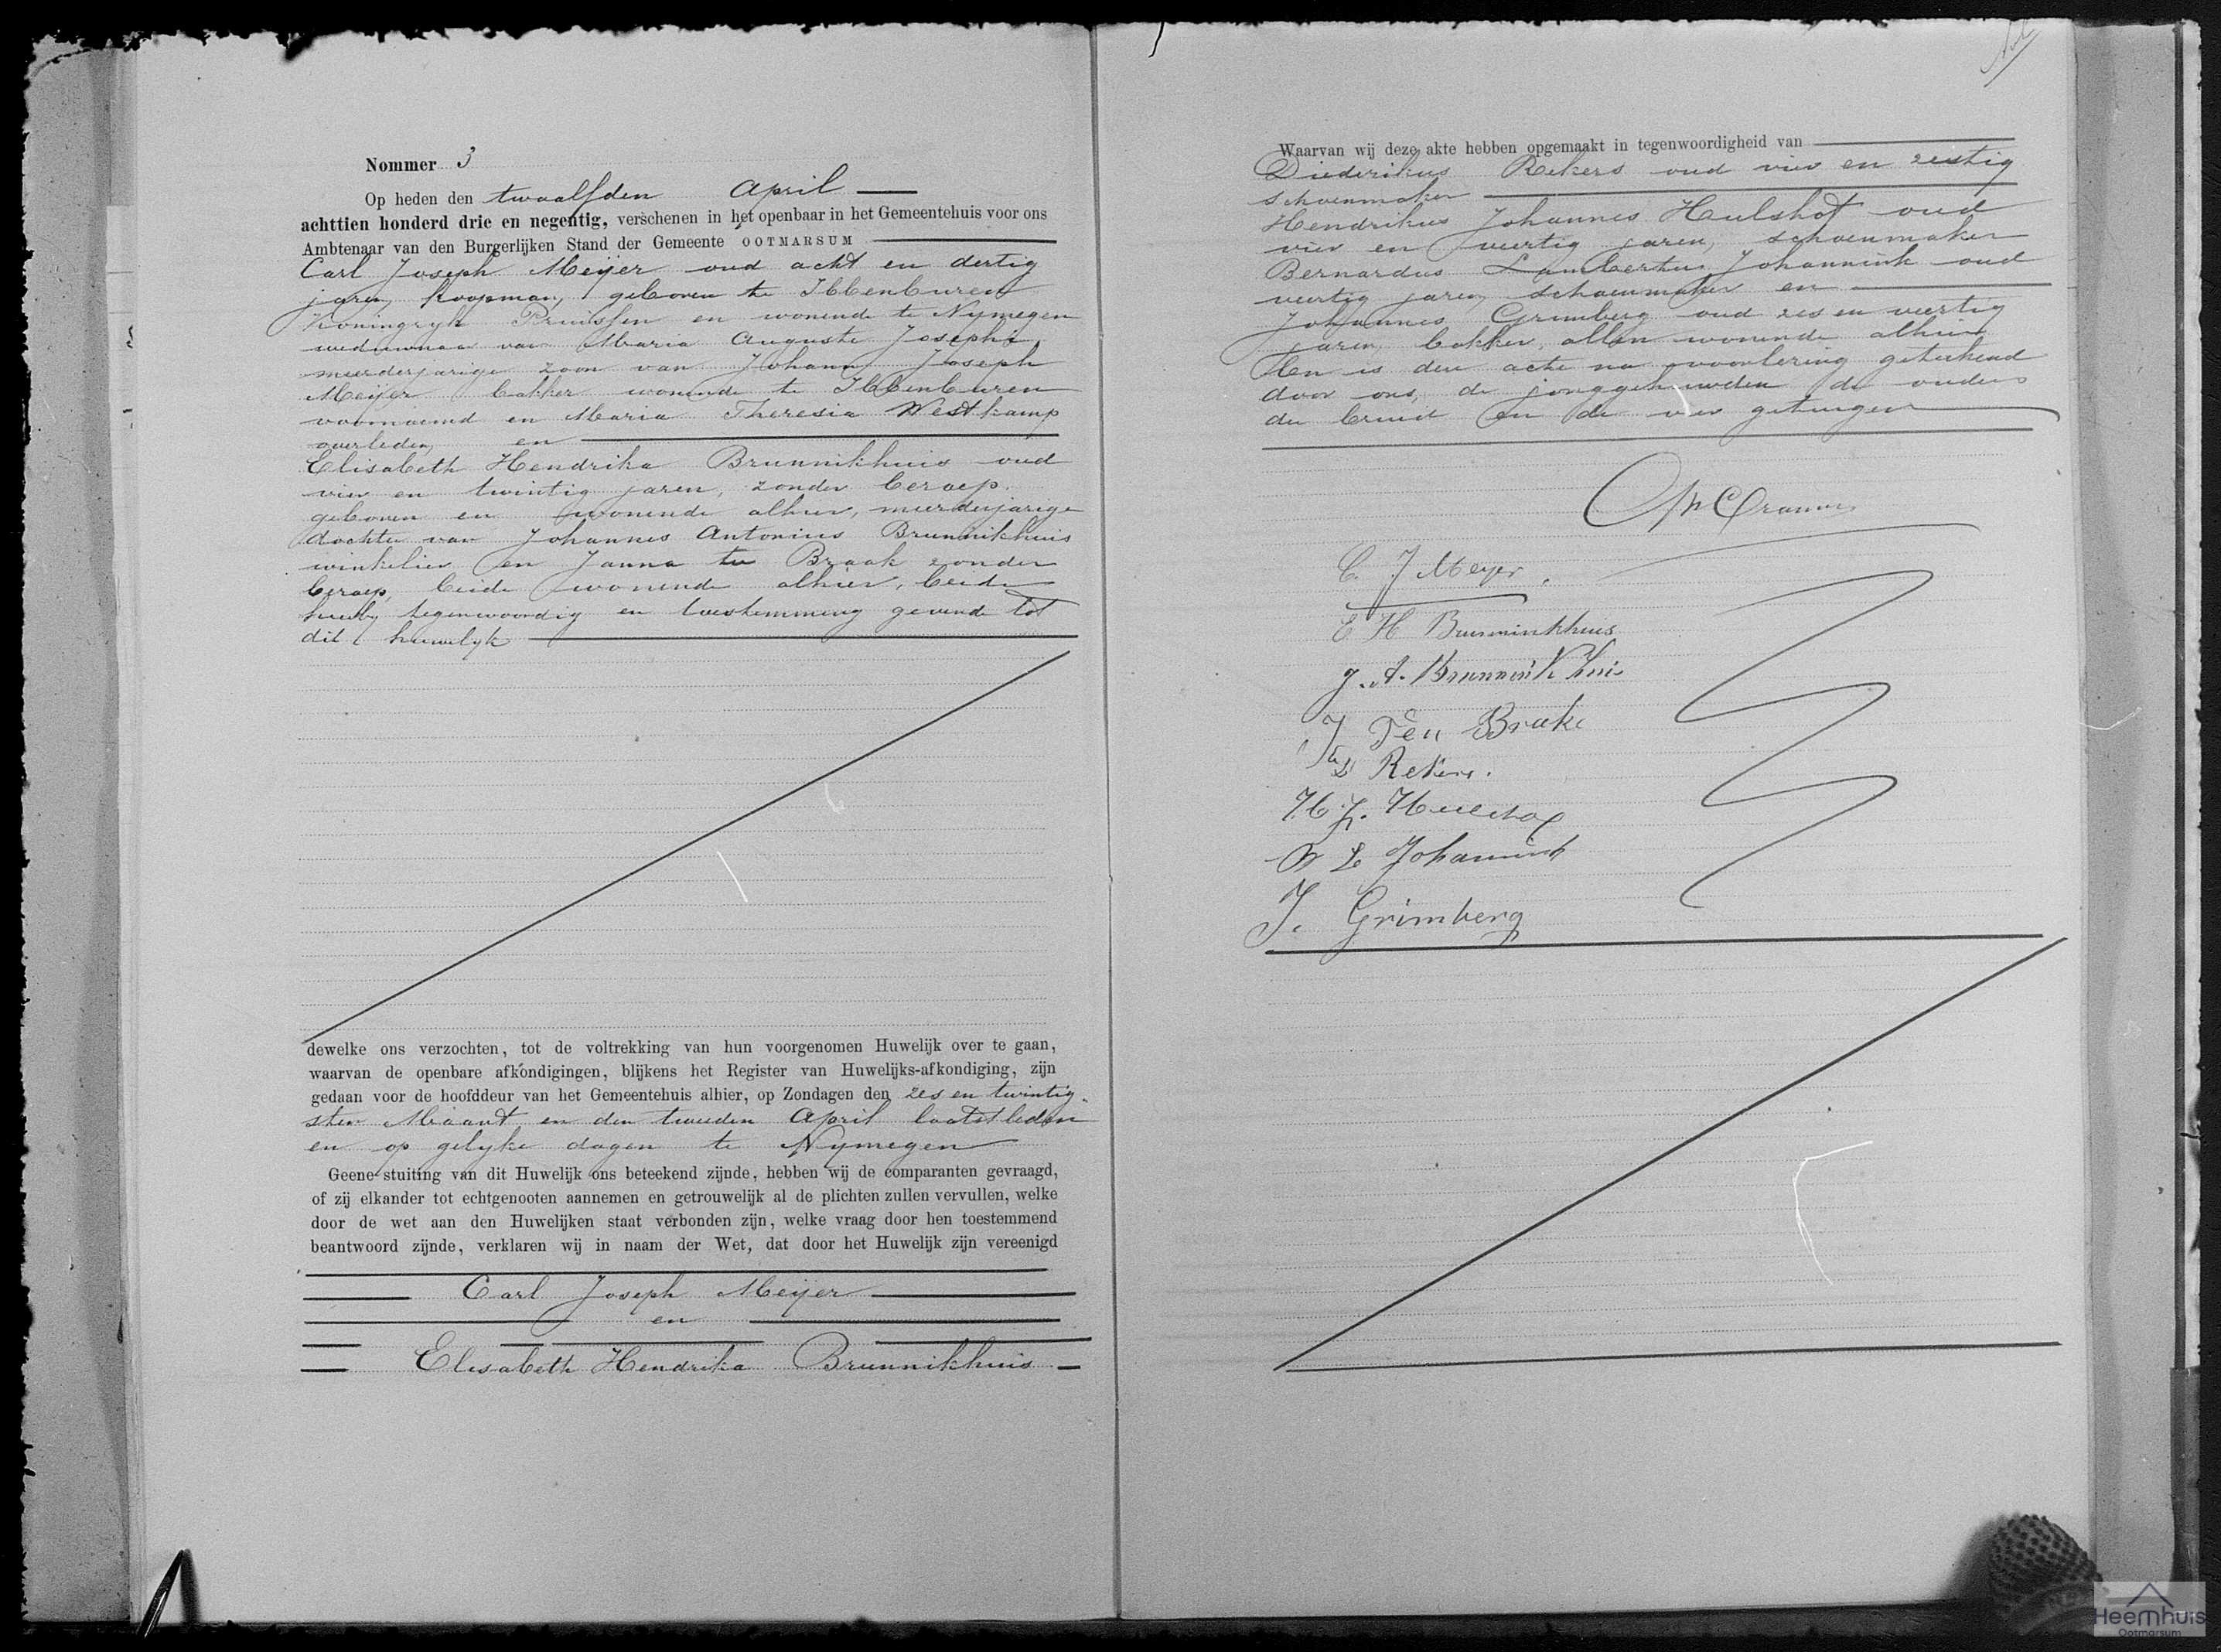 Nommer 3
Op heden den twaalfden April
achttien honderd drie en negentig, verschenen in het openbaar in het Gemeentehuis voor ons
Ambtenaar van den Burgerlijken Stand der Gemeente OOTMARSUM
Carl Joseph Meijer oud acht en dertig
jaren, koopman, geboren te Ibbenburen
Koningryk Pruissen en wonende te Nymegen
weduwnaar van Maria Auguste Josephi,
meerderjarige zoon van Johann Joseph
Meijer bakker wonende te Ibbenburen
voornoemd en Maria Theresia Westkamp
overleden, en
Elisabeth Hendrika Brunnikhuis oud
vier en twintig jaren, zonder beroep.
geboren en wonende alhier, meerderjarige
dochter van Johannes Antonius Brunnikhuis
winkelier en Janna te Braak zonder
beroep, beide wonende alhier, beide
hierby tegenwoordig en toestemming gevende tot
dit huwelyk
dewelke ons verzochten, tot de voltrekking van hun voorgenomen Huwelijk over te gaan,
waarvan de openbare afkondigingen, blijkens het Register van Huwelijks-afkondiging, zijn
gedaan voor de hoofddeur van het Gemeentehuis alhier, op Zondagen den zes en twintig-
sten Maart en den tweeden April laatstleden
en op gelyke dagen te Nymegen
Geene stuiting van dit Huwelijk ons beteekend zijnde, hebben wij de comparanten gevraagd,
of zij elkander tot echtgenooten aannemen en getrouwelijk al de plichten zullen vervullen, welke
door de wet aan den Huwelijken staat verbonden zijn, welke vraag door hen toestemmend
beantwoord zijnde, verklaren wij in naam der Wet, dat door het Huwelijk zijn vereenigd
Carl Joseph Meijer
en
Elisabeth Hendrika Brunnikhuis
Waarvan wij deze akte hebben opgemaakt in tegenwoordigheid van
Diederikus Rekers oud vier en zestig
schoenmaker
Hendrikus Johannes Hulshof oud
vier en veertig jaren, schoenmaker
Bernardus Lambertus Johannink oud
veertig jaren, schoenmaker en
Johannes Grimberg oud zes en veertig
jaren, bakker, allen wonende alhier
En is deze acte na voorlezing geteekend
door ons, de jonggehuwden de ouders
der bruid en de vier getuigen
C. J Meyer.
E H Brunninkhuis
J. A. Brunninkhuis
J Ten Brake
D Rekers.
H J. Hulshof
B L Johannink
J. Grimberg
Heemhuis
Ootmarsum